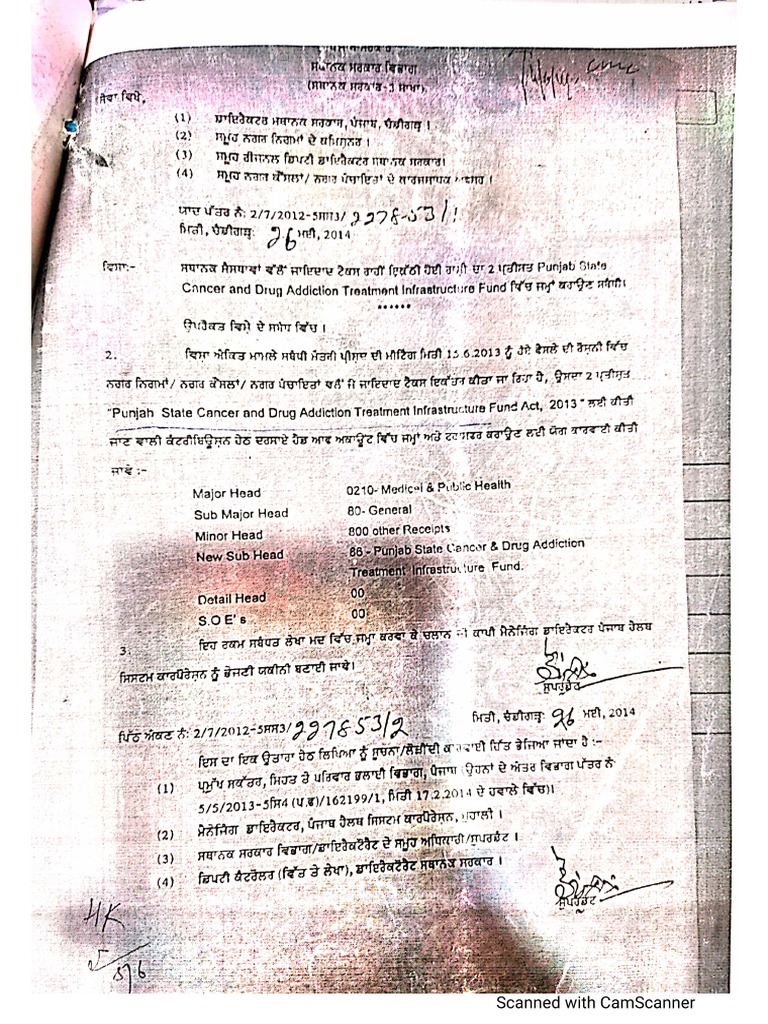 ਪੰਜਾਬ ਸਰਕਾਰ
ਸਥਾਨਕ ਸਰਕਾਰ ਵਿਭਾਗ
(ਸਥਾਨਕ ਸਰਕਾਰ-3 ਸ਼ਾਖਾ)
ਸੇਵਾ ਵਿਖੇ,
(1) ਡਾਇਰੈਕਟਰ ਸਥਾਨਕ ਸਰਕਾਰ, ਪੰਜਾਬ, ਚੰਡੀਗੜ੍ਹ ।
(2) ਸਮੂਹ ਨਗਰ ਨਿਗਮਾਂ ਦੇ ਕਮਿਸ਼ਨਰ ।
(3) ਸਮੂਹ ਰੀਜਨਲ ਡਿਪਟੀ ਡਾਇਰੈਕਟਰ ਸਥਾਨਕ ਸਰਕਾਰ।
(4) ਸਮੂਹ ਨਗਰ ਕੌਂਸਲਾਂ/ ਨਗਰ ਪੰਚਾਇਤਾਂ ਦੇ ਕਾਰਜਸਾਧਕ ਅਫਸਰ ।
ਯਾਦ ਪੱਤਰ ਨੰ: 2/7/2012-5ਸਸ3/ 227853/1
ਮਿਤੀ, ਚੰਡੀਗੜ੍ਹ: 26 ਮਈ, 2014
ਵਿਸ਼ਾ:- ਸਥਾਨਕ ਸੰਸਥਾਵਾਂ ਵੱਲੋਂ ਜਾਇਦਾਦ ਟੈਕਸ ਰਾਹੀਂ ਇਕੱਠੀ ਹੋਈ ਰਾਸ਼ੀ ਦਾ 2 ਪ੍ਰਤੀਸ਼ਤ Punjab State
Cancer and Drug Addiction Treatment Infrastructure Fund ਵਿੱਚ ਜਮ੍ਹਾਂ ਕਰਾਉਣ ਸਬੰਧੀ।
******
ਉਪਰੋਕਤ ਵਿਸ਼ੇ ਦੇ ਸਬੰਧ ਵਿੱਚ ।
2. ਵਿਸ਼ਾ ਅੰਕਿਤ ਮਾਮਲੇ ਸਬੰਧੀ ਮੰਤਰੀ ਪ੍ਰੀਸ਼ਦ ਦੀ ਮੀਟਿੰਗ ਮਿਤੀ 15.6.2013 ਨੂੰ ਹੋਏ ਫੈਸਲੇ ਦੀ ਰੌਸ਼ਨੀ ਵਿੱਚ
ਨਗਰ ਨਿਗਮਾਂ/ ਨਗਰ ਕੌਂਸਲਾਂ/ ਨਗਰ ਪੰਚਾਇਤਾਂ ਵਲੋਂ ਜੋ ਜਾਇਦਾਦ ਟੈਕਸ ਇਕੱਤਰ ਕੀਤਾ ਜਾ ਰਿਹਾ ਹੈ, ਉਸਦਾ 2 ਪ੍ਰਤੀਸ਼ਤ
"Punjab State Cancer and Drug Addiction Treatment Infrastructure Fund Act, 2013 " ਲਈ ਕੀਤੀ
ਜਾਣ ਵਾਲੀ ਕੰਟਰੀਬਿਊਸ਼ਨ ਹੇਠ ਦਰਸਾਏ ਹੈਡ ਆਫ ਅਕਾਊਂਟ ਵਿੱਚ ਜਮ੍ਹਾਂ ਅਤੇ ਟਰਾਂਸਫਰ ਕਰਾਉਣ ਲਈ ਯੋਗ ਕਾਰਵਾਈ ਕੀਤੀ
ਜਾਵੇ :-
Major Head 0210- Medical & Public Health
Sub Major Head 80- General
Minor Head 800 other Receipts
New Sub Head 86 - Punjab State Cancer & Drug Addiction
Treatment Infrastructure Fund.
Detail Head 00
S.O.E's 00
3. ਇਹ ਰਕਮ ਸਬੰਧਤ ਲੇਖਾ ਮਦ ਵਿੱਚ ਜਮ੍ਹਾ ਕਰਵਾ ਕੇ ਚਲਾਨ ਦੀ ਕਾਪੀ ਮੈਨੇਜਿੰਗ ਡਾਇਰੈਕਟਰ ਪੰਜਾਬ ਹੈਲਥ
ਸਿਸਟਮ ਕਾਰਪੋਰੇਸ਼ਨ ਨੂੰ ਭੇਜਣੀ ਯਕੀਨੀ ਬਣਾਈ ਜਾਵੇ।
ਸੁਪਰਡੰਟ
ਪਿੱਠ ਅੰਕਣ ਨੰ: 2/7/2012-5ਸਸ3/ 227853/2 ਮਿਤੀ, ਚੰਡੀਗੜ੍ਹ: 26 ਮਈ, 2014
ਇਸ ਦਾ ਇਕ ਉਤਾਰਾ ਹੇਠ ਲਿਖਿਆ ਨੂੰ ਸੂਚਨਾ/ਲੋੜੀਂਦੀ ਕਾਰਵਾਈ ਹਿੱਤ ਭੇਜਿਆ ਜਾਂਦਾ ਹੈ :-
(1) ਪ੍ਰਮੁੱਖ ਸਕੱਤਰ, ਸਿਹਤ ਤੇ ਪਰਿਵਾਰ ਭਲਾਈ ਵਿਭਾਗ, ਪੰਜਾਬ (ਉਹਨਾਂ ਦੇ ਅੰਤਰ ਵਿਭਾਗ ਪੱਤਰ ਨੰ
5/5/2013-5ਸਿ4 (ਪ.ਫ)/162199/1, ਮਿਤੀ 17.2.2014 ਦੇ ਹਵਾਲੇ ਵਿੱਚ)।
(2) ਮੈਨੇਜਿੰਗ ਡਾਇਰੈਕਟਰ, ਪੰਜਾਬ ਹੈਲਥ ਸਿਸਟਮ ਕਾਰਪੋਰੇਸ਼ਨ, ਮੁਹਾਲੀ ।
(3) ਸਥਾਨਕ ਸਰਕਾਰ ਵਿਭਾਗ/ਡਾਇਰੈਕਟੋਰੇਟ ਦੇ ਸਮੂਹ ਅਧਿਕਾਰੀ/ਸੁਪਰਡੰਟ ।
(4) ਡਿਪਟੀ ਕੰਟਰੋਲਰ (ਵਿੱਤ ਤੇ ਲੇਖਾ), ਡਾਇਰੈਕਟੋਰੇਟ ਸਥਾਨਕ ਸਰਕਾਰ ।
ਸੁਪਰਡੰਟ
HK
5/6
Scanned with CamScanner